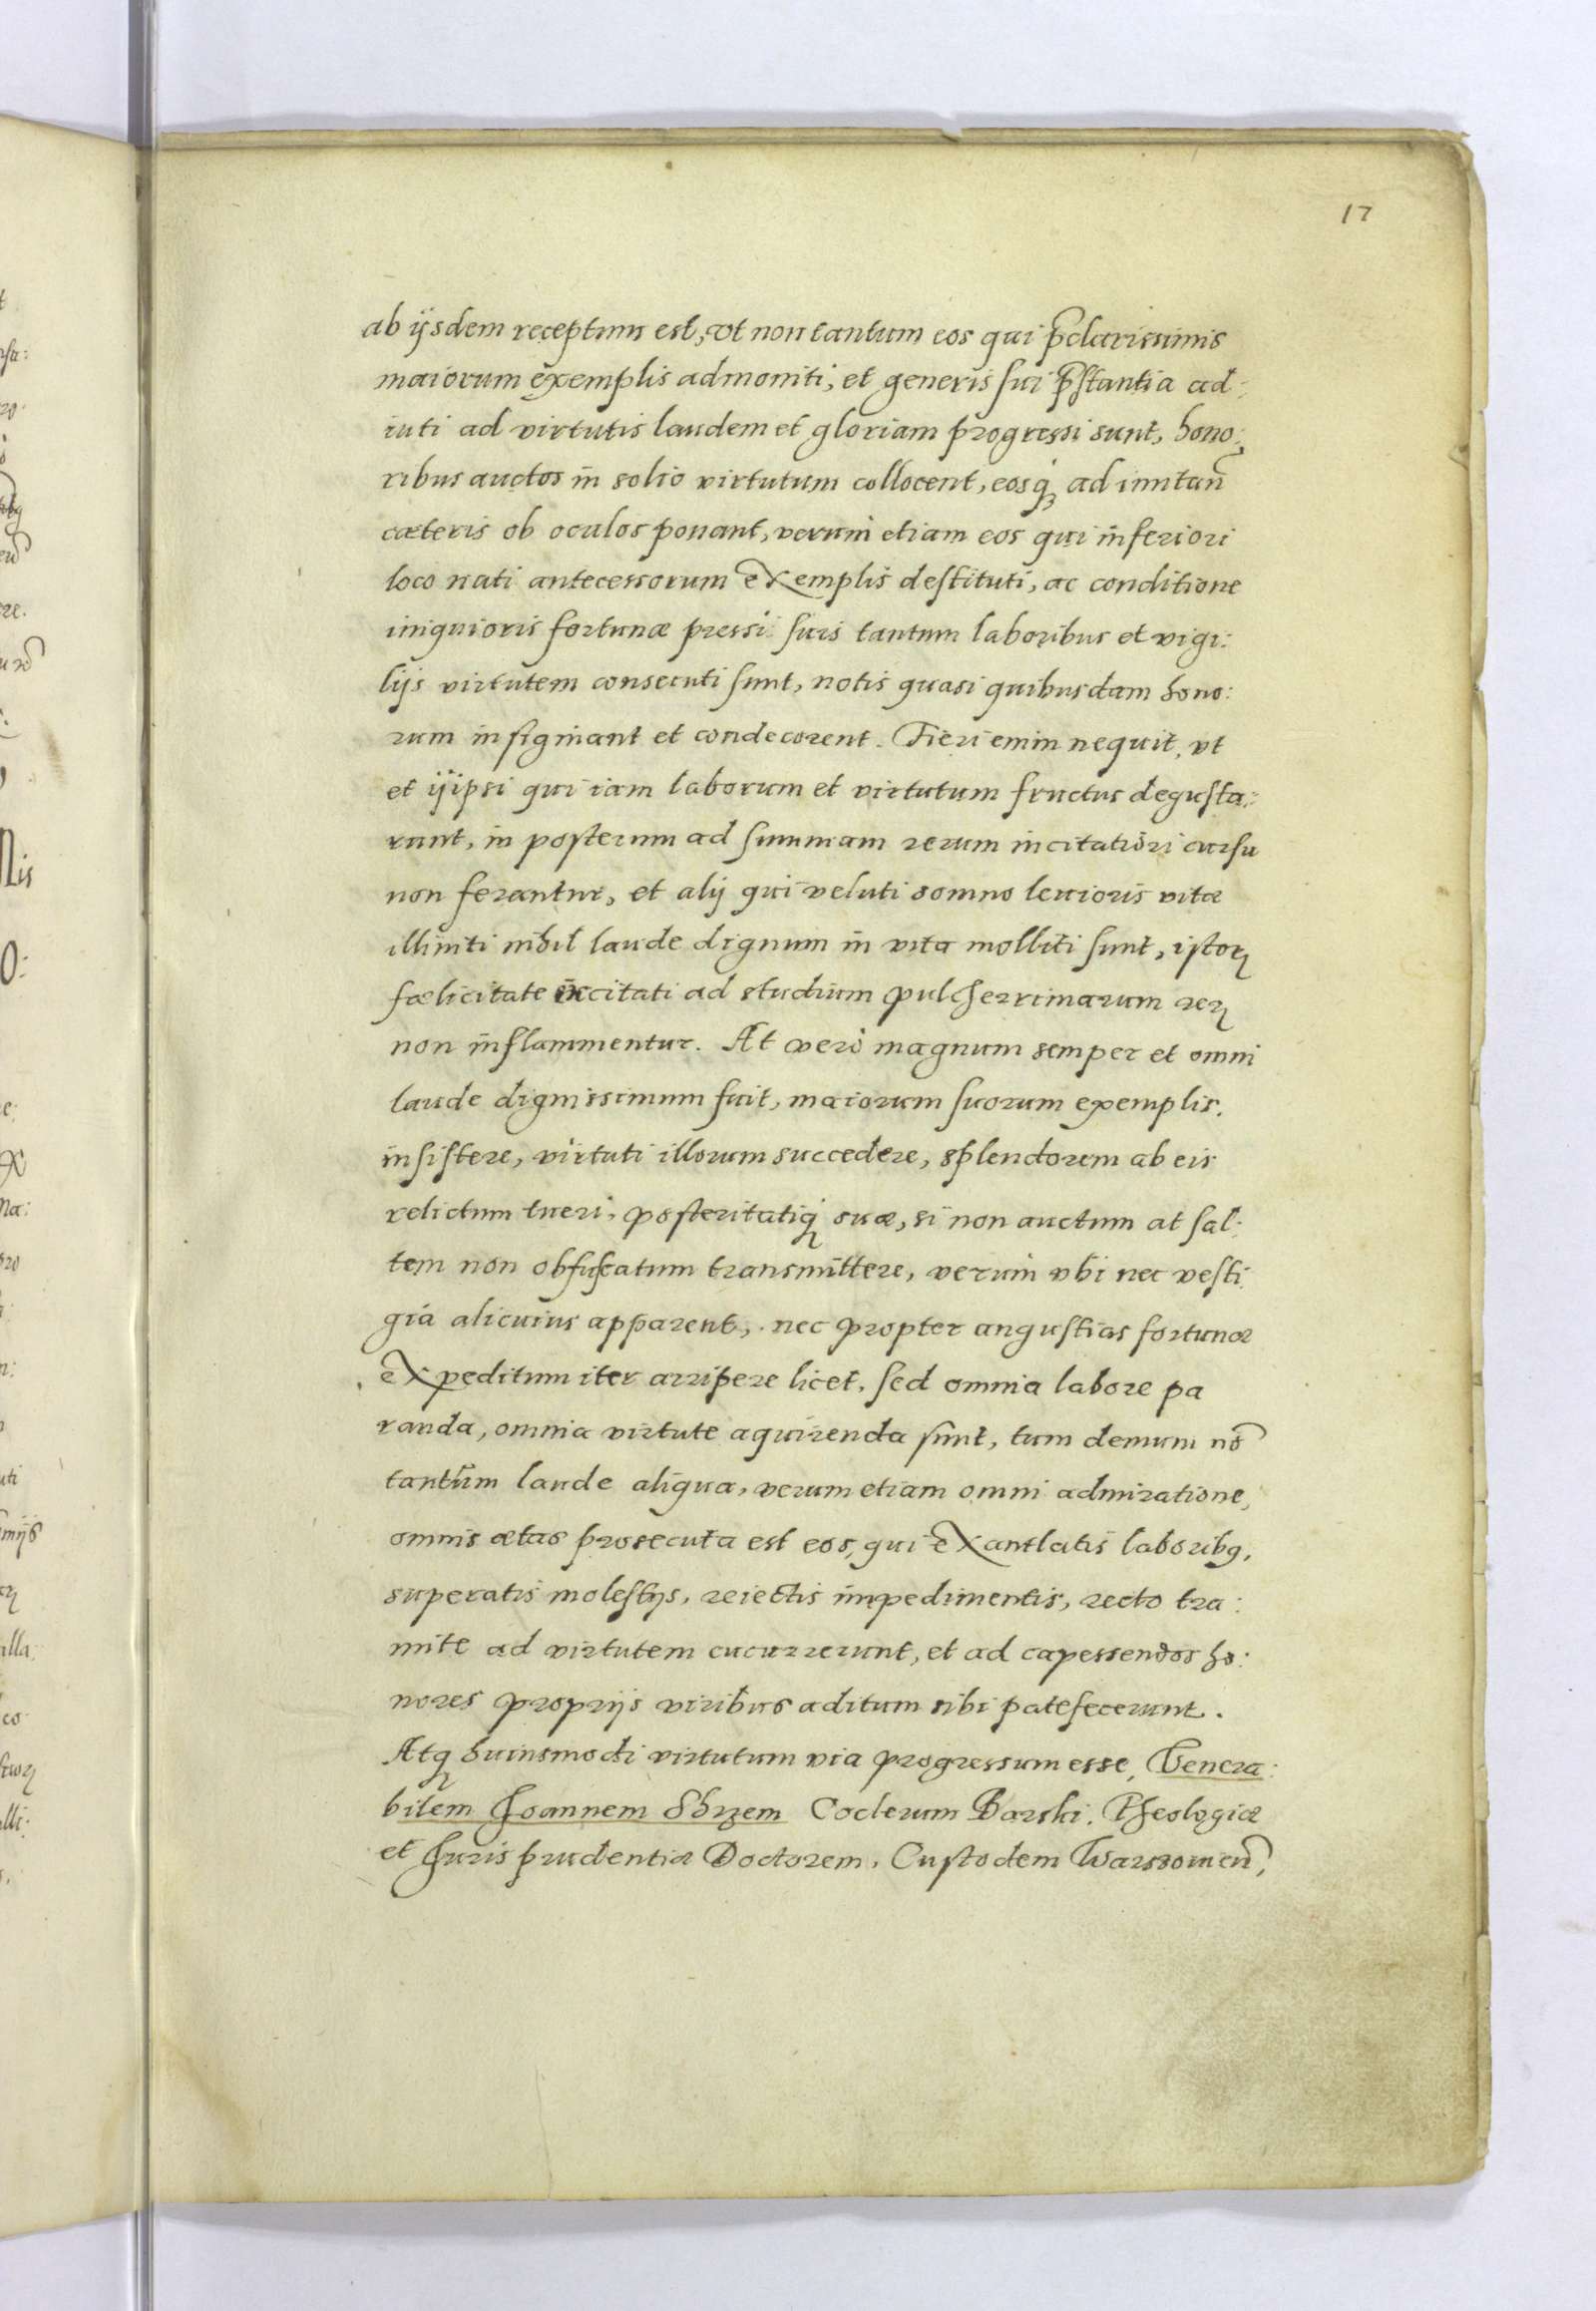 17
ab ijsdem receptum est, vt non tantum eos qui p̃clarissimis
maiorum exemplis admoniti, et generis sui p̃stantia ad:
iuti ad virtutis laudem et gloriam progressi sunt, hono:
ribus auctos in solio virtutum collocent, eosq́ꝫ ad imitan̄
cæteris ob oculos ponant, verum etiam eos qui inferiori
loco nati antecessorum exemplis destituti, ac conditione
iniquioris fortunæ pressi suis tantum laboribus et vigi:
lijs virtutem consecuti sunt, notis quasi quibusdam hono:
rum insigniant et condecorent. Fieri enim nequit, vt
et ijipsi qui iam laborum et virtutum fructus degusta:
runt, in posterum ad summam rerum incitatiori cursu
non ferantur, et alij qui veluti somno leuioris vitæ
illiniti nihil laude dignum in vita molliti sunt, istoꝝ
fœlicitate excitati ad studium pulcherrimarum reꝝ
non inflammentur. At verò magnum semper et omni
laude dignissimum fuit, maiorum suorum exemplis.
insistere, virtuti illorum succedere, splendorem ab eis
relictum tueri, posteritatiq́ꝫ suæ, si non auctum at sal:
tem non obfuscatum transmittere, verum vbi nec vesti
gia alicuius apparent, nec propter angustias fortunæ
expeditum iter arripere licet, sed omnia labore pa
randa, omnia virtute aquirenda sunt, tum demum nō
tantùm laude aliqua, verum etiam omni admiratione,
omnis ætas prosecuta est eos, qui exantlatis laboribꝰ,
superatis molestijs, reiectis impedimentis, recto tra:
mite ad virtutem cucurrerunt, et ad capessendos ho:
nores proprijs viribus aditum sibi patefecerunt.
Atqꝫ huiusmodi virtutum via progressum esse, Venera:
bilem Joannem Theologiæ
et Juris prudentiæ Doctorem, Custodem